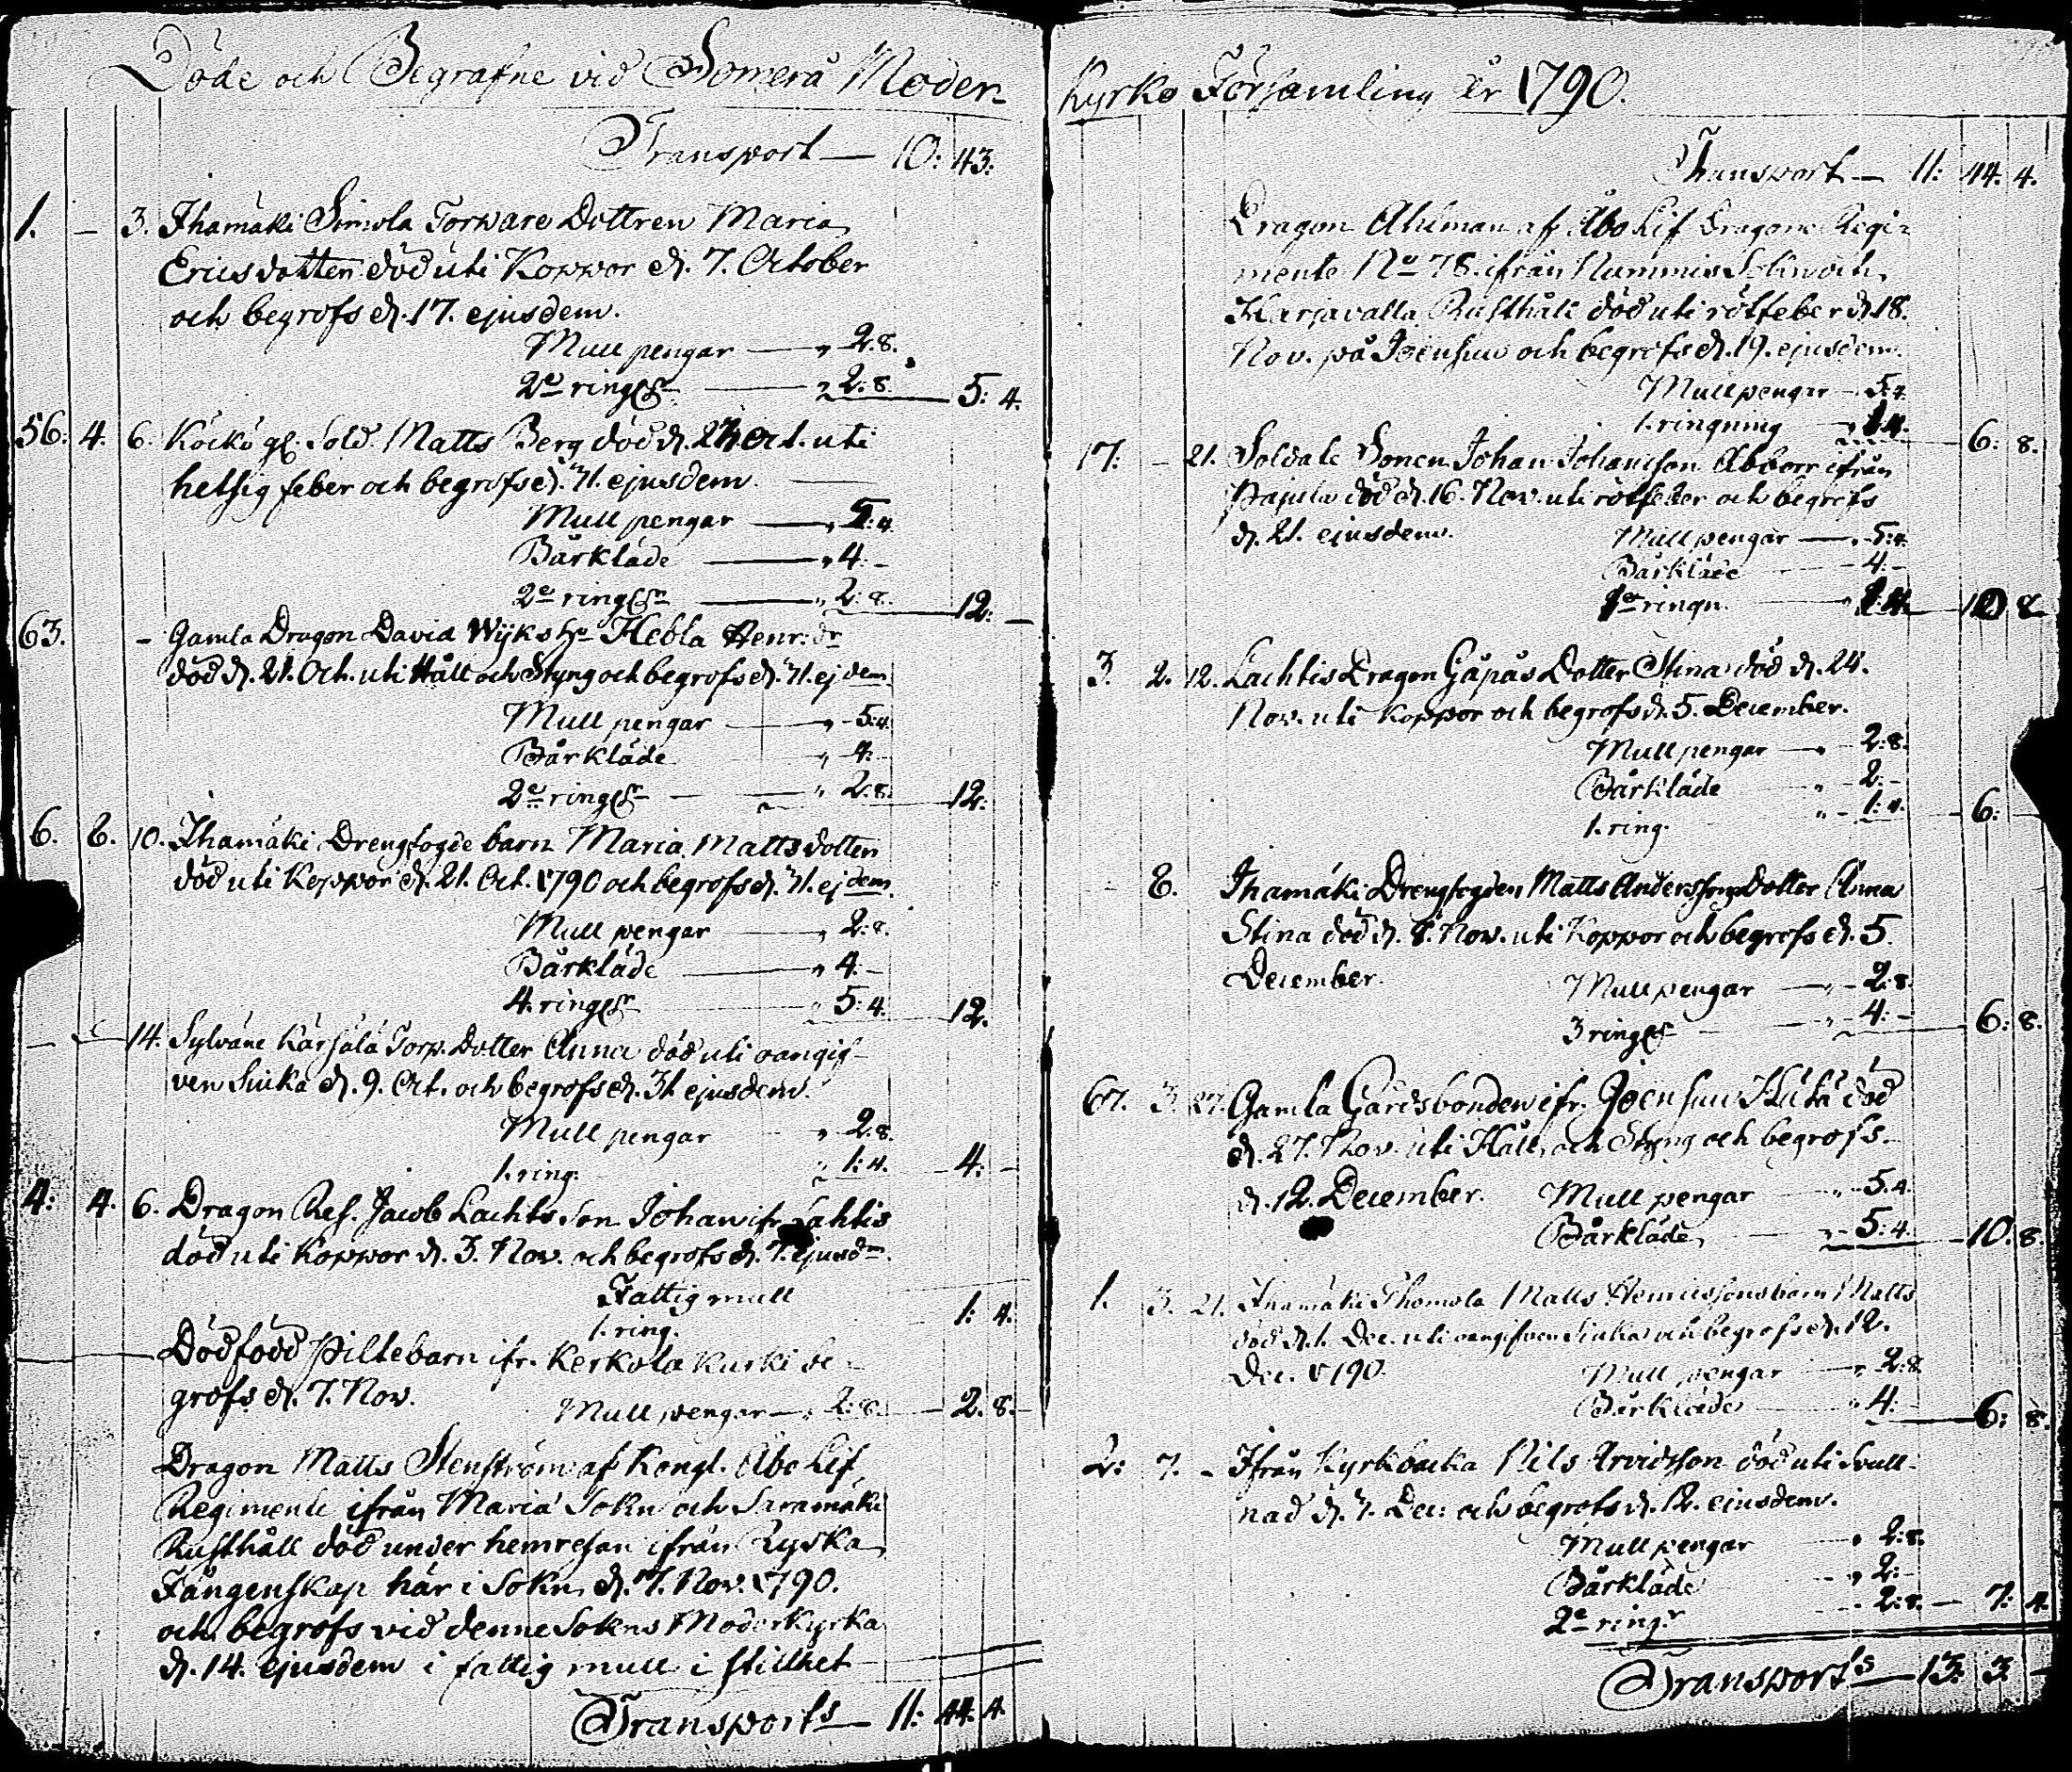 Döde och Begrafne vid Somero Moder-
Transport — 10: 43.
1. — 3. Ihamäki Simola Torpare Dottren Maria
Ericsdotter död uti Koppor d. 7. October
och begrofs d. 17. ejusdem.
Mull pengar — " 2.8.
2e ring — " 2:8. 5: 4.
56. 4. 6. gl. Sold. Matts Berg död d. Oct. uti
hetsig feber och begrofs d. 31. ejusdem.
Mull pengar — " 5:4.
Bårkläde — " 4. –
2e ring — " 2:8. 12. –
63. – Gamla Dragon David Wijks Hebla Henr: dr
död d. 21. Oct. uti Håll och Styng och begrofs d. 31. ejdem
Mull pengar — " 5:4.
Bårkläde " 4. –
2e ring — " 2.8. 12.
6. 8. 10. Ihamäki Drengfogde barn Maria Mattsdotter
död uti Koppor d. 21. Oct. 1790 och begrofs d. 31. ejdem
Mull pengar — " 2:8.
Bårkläde — " 4. –
4. ring " 5:4. 12.
— 14. Sylväne Torp. Dotter Anna död uti oangif-
ven Siuka d. 9. Oct. och begrofs d. 31 ejusdem.
Mull pengar " 2.8.
1. ring. " 1:4. 4. –
4. 4. 6. Dragon Ref. Jacob Lachts Son Johan ifr. Lahtis
död uti Koppor d. 3. Nov. och begrofs d. 7. ejusdm.
Fattig mull
1. ring. 1. 4.
Dödfödd Piltebarn ifr. Kerkola Kurki be-
grofs d. 7. Nov.
Mull pengar — " 2:8. – 2. 8.
Dragon Matts Stenström af Kongl. Åbo Lif
Regimente ifrån Maria Sokn och Saramäki
Rusthåll död under hemresan ifrån Ryska
Fångenskap här i Sokn d. 7. Nov. 1790.
och begrofs vid denne Sokens Moderkyrka
d. 14. ejusdem i fattig mull i stillhet
Transports — 11: 44. 4.
Kyrko Församling År 1790.
Transport — 11: 44. 4.
Dragon Ahlman af Åbo Lif Dragone Regi-
mente No 78. ifrån Nummis Sokn och
Karjavalla Rusthåll död uti rötfeber d. 18.
Nov. på Joensuu och begrofs d. 19. ejusdem.
Mullpengar — 5:4.
1. ringning 1:4. 6: 8.
17. – 21. Soldate Sonen Johan Johansson Abborr ifrån
Pajula död d. 16. Nov. uti rötfeber och begrofs
d. 21. ejusdem.
Mullpengar — 5:4.
Bårkläde 4. –
ringn. 10 8
3. 2. 12. Lachtis Dragon Gåpås Dotter Stina död d. 24.
Nov. uti Koppor och begrofs d. 5. December.
Mull pengar — 2:8.
Bårkläde " 2. –
1. ring. " 1:4. 6: –
– 8. Ihamäki Drengfogden Matts Anderssons Dotter Anna
Stina död d. 8. Nov. uti Koppor och begrofs d. 5.
December.
Mullpengar — " 2:8.
3 ring " 4. – 6: 8.
67. 3. 27. Gamla Gårdsbonden ifr. Joensuu död
d. 27. Nov. uti Håll och Styng och begrofs
d. 12. December.
Mull pengar " 5.4.
Bårkläde " 5:4. 10. 8.
1. 3. 21. Ihamäki Thomola Matts Henricssons barn Matts
död d. 1. Dec. uti oangifven Siuka och begrofs d. 12.
Dec. 1790.
Mull pengar — " 2:8.
Bårkläde " 4. – 6: 8.
2: 7. – Ifrån Kyrkbacka Nils Arvidsson död uti Svull-
nad d. 7. Dec: och begrofs d. 12. ejusdem.
Mullpengar " 2:8.
Bårkläde " 2: –
2e ringr 2:8. — 7: 4.
Transports — 13. 3 –